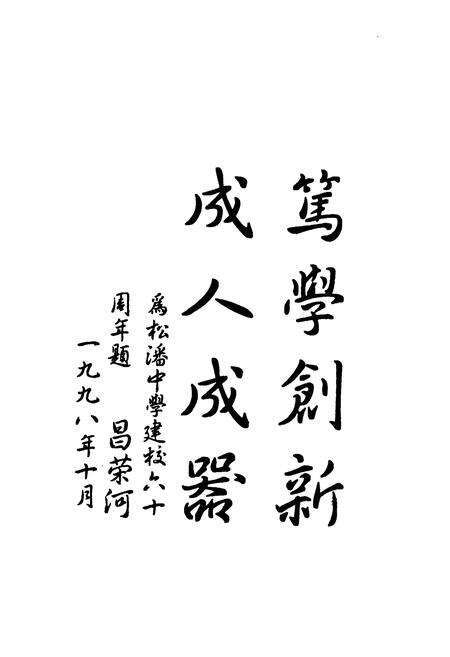 篤學創新
成人成器
爲松潘中學建校六十
周年題 昌荣河
一九九八年十月